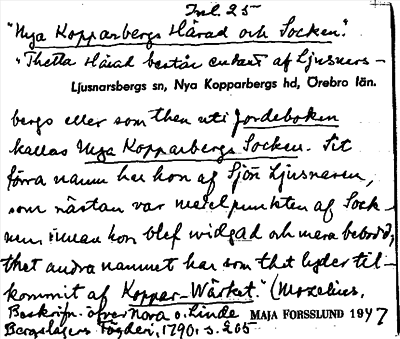 Inl. 25
"Nya Kopparbergs Härad och Socken".
"Thetta Härad består enkast af Ljusners-
Ljusnarsbergs sn, Nya Kopparbergs hd, Örebro län.
bergs eller som then uti Jordeboken
kallas Nya Kopparbergs Socken. Sit
förra namn har hon af Sjön Ljusnaren,
som nästan var medelpunkten af Sock-
nen innan hon blef widgad och mera bebodd,
thet andra namnet har som thet lyder til-
kommit af Koppar-Wärket." (Mozelius,
Beskrifn. öfver Nora o. Linde MAJA FORSSLUND 1947
Bergslagers Fögderi, 1790, s. 205